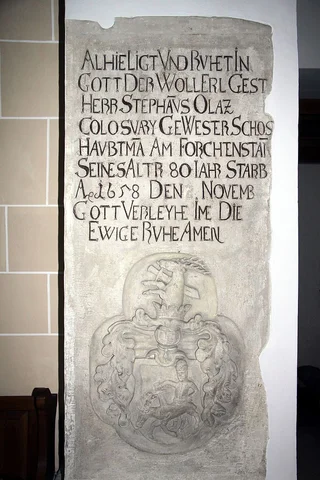 ALHIE LIGT VND RVHET IN
GOTT DER WOLL ERL GEST
HERR STEPHAVS OLAZ
COLOSVARY GEWESTER SCHOS
HAVBTMĀ AM FORCHENSTAI
SEINES ALTR 80 IAHR STARB
Aº 1658 DEN NOVEMB
GOTT VERLEYHE IME DIE
EWIGE RVHE AMEN